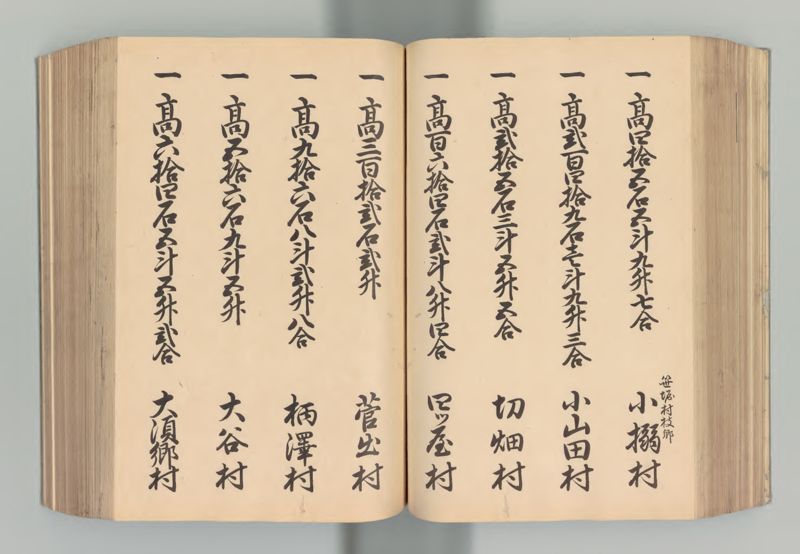 一 高四拾五石五斗九升七合
笹堀村枝郷
小搦村
一 高弐百四拾九石壱斗九升三合 小山田村
一 高弐拾五石三斗五升五合 切畑村
一 高百六拾四石弐斗八升四合 四ッ屋村
一 高三百拾弐石弐升 菅出村
一 高九拾六石八斗弐升八合 柄澤村
一 高五拾六石九斗五升 大谷村
一 高六拾四石五斗五升弐合 大須郷村